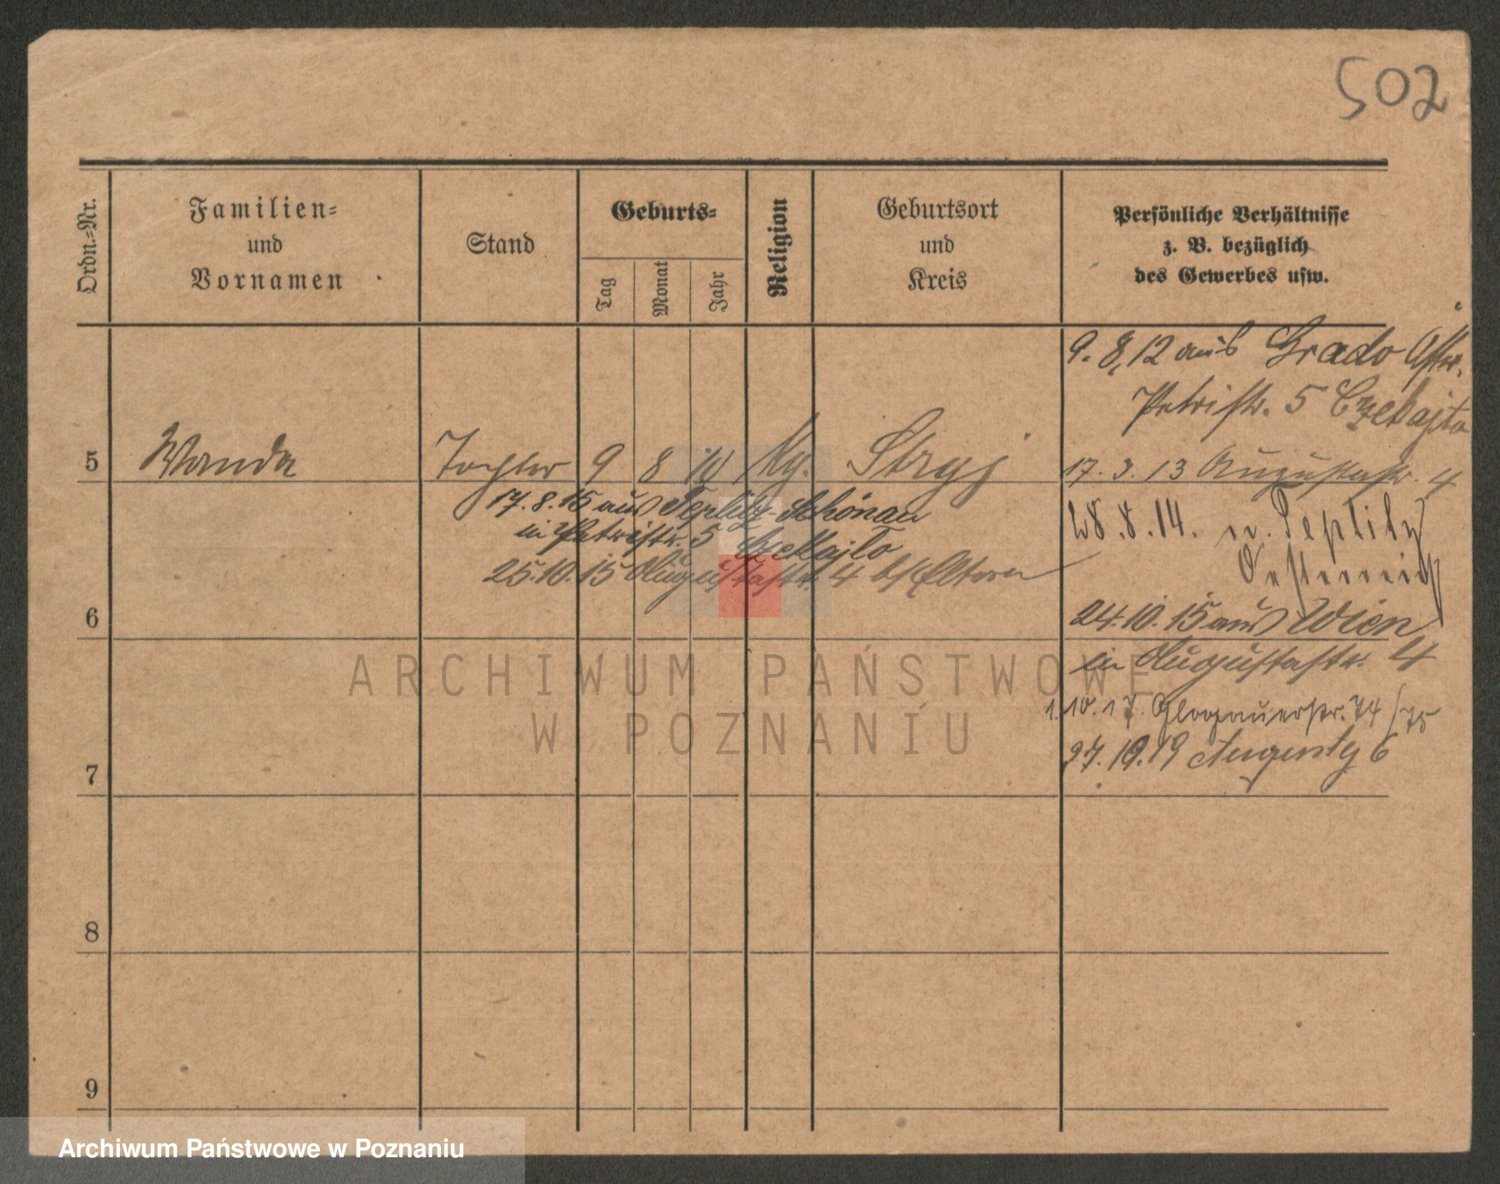 502
Ordn.-Nr.
Familien-
und
Vornamen
Stand
Geburts-
Tag
Monat
Jahr
Religion
Geburtsort
und
Kreis
Persönliche Verhältnisse
z. B. bezüglich
des Gewerbes usw.
9. 8. 12 aus Grado
Petristr. 5 Czekajto
5 Wanda Tochter 9 8 Stryj
17. 3. 13 Augustastr. 4
17. 8. 15 aus Teplitz Schönau
in Petristr. 5 Czekajto
25. 10. 15 Augustastr. 4 Eltern
28. 8. 14. n. Teplitz
Oesterreich
6
24. 10. 15 aus Wien
in Augustastr. 4
1. 10. 17. Glogauerstr. 74/75
27. 10. 19 6
7
8
9
ARCHIWUM PAŃSTWOWE
W POZNANIU
Archiwum Państwowe w Poznaniu